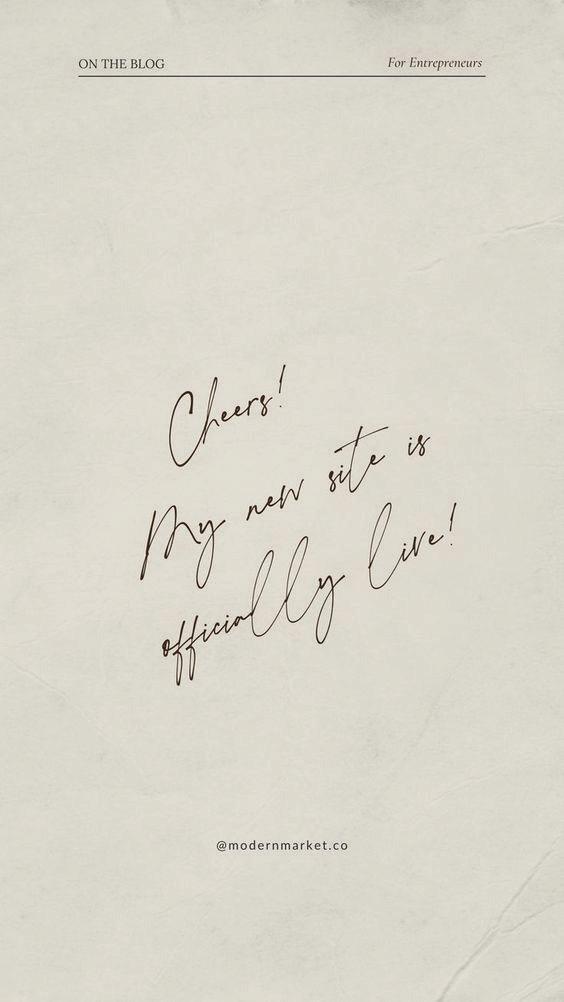 ON THE BLOG
For Entrepreneurs
Cheers!
My new site is
officially live!
@modernmarket.co